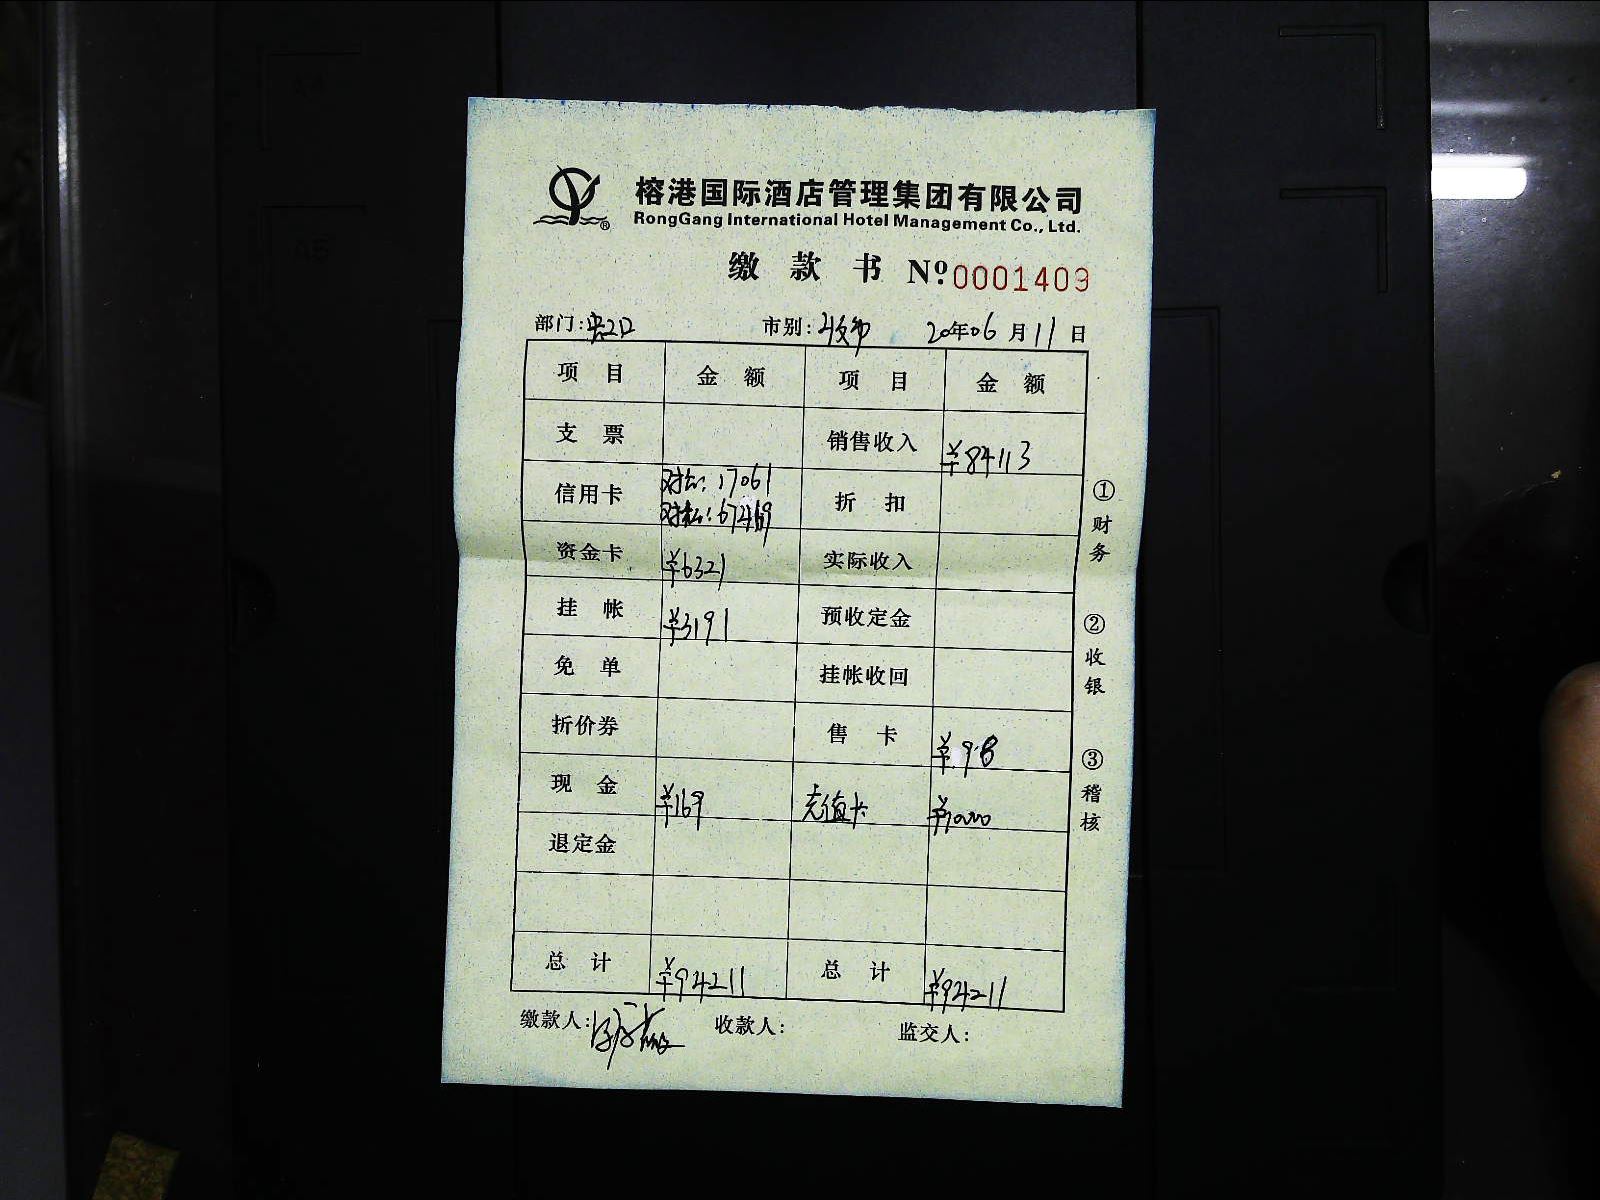 榕港国际酒店管理集团有限公司
RongGang International Hotel Management Co., Ltd.
®
缴 款 书 Nº.0001409
部门: 市别: 夜市 20年06月11日
项 目 金 额 项 目 金 额
支 票 销售收入 ¥84113
信用卡 对公: 17061 折 扣
对私: 67469
资金卡 ¥6321 实际收入
挂 帐 ¥3191 预收定金
免 单 挂帐收回
折价券 售 卡 ¥98
现 金 ¥169 充值卡 ¥10000
退定金
总 计 ¥94211 总 计 ¥94211
缴款人: 收款人: 监交人:
①财务
②收银
③稽核
A4
A5